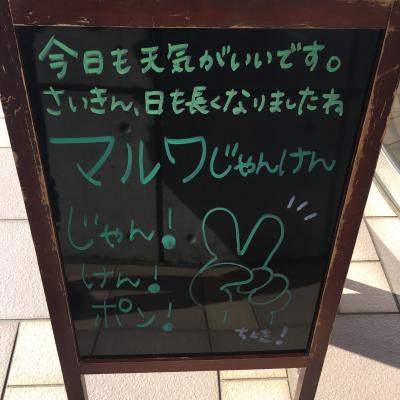 今日も天気がいいです。
さいきん、日も長くなりましたね
マルワじゃんけん
じゃん!
けん!
ポン!
ちょき!